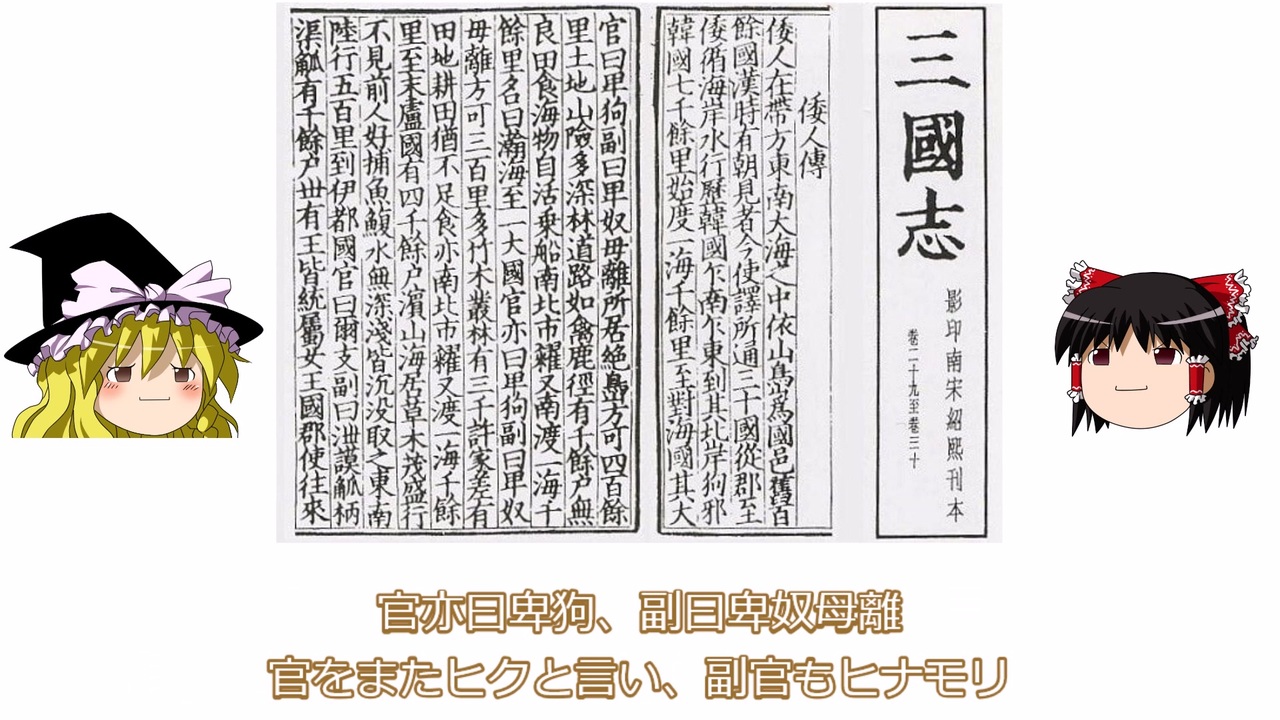 三國志
影印南宋紹熙刊本
卷二十九至卷三十
倭人傳
倭人在帶方東南大海之中依山島爲國邑舊百
餘國漢時有朝見者今使譯所通三十國從郡至
倭循海岸水行歷韓國乍南乍東到其北岸狗邪
韓國七千餘里始度一海千餘里至對海國其大
官曰卑狗副曰卑奴毋離所居絶島方可四百餘
里土地山險多深林道路如禽鹿徑有千餘户無
良田食海物自活乗船南北市糴又南渡一海千
餘里名曰瀚海至一大國官亦曰卑狗副曰卑奴
毋離方可三百里多竹木叢林有三千許家差有
田地耕田猶不足食亦南北市糴又渡一海千餘
里至末盧國有四千餘户濵山海居草木茂盛行
不見前人好捕魚鰒水無深淺皆沉没取之東南
陸行五百里到伊都國官曰爾支副曰泄謨觚柄
渠觚有千餘户丗有王皆統屬女王國郡使往來
官亦曰卑狗、副曰卑奴母離
官をまたヒクと言い、副官もヒナモリ